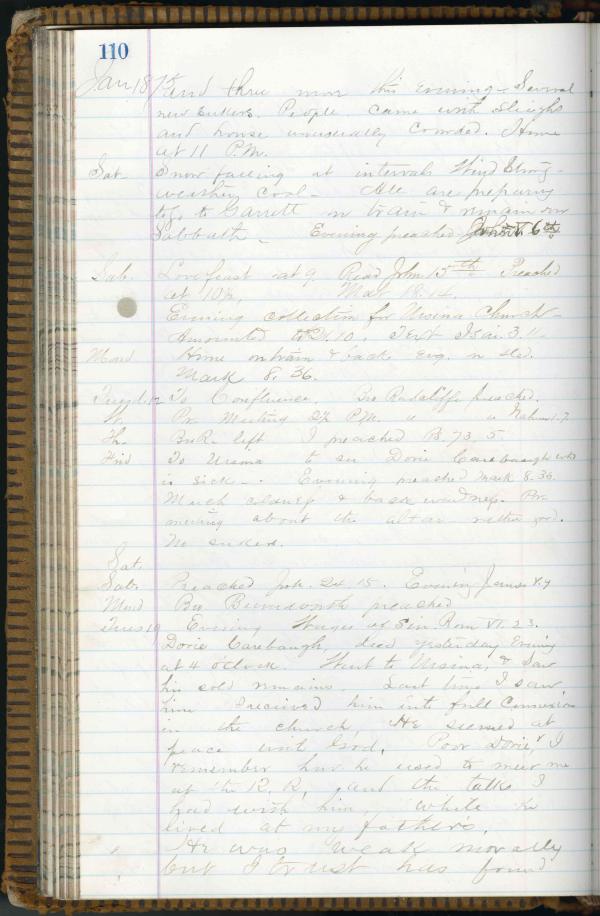 110
Jan 1875 and three more this evening - Several
new seekers. People came with sleighs
and house unusually crowded. Home
at 11 P.M.
Sat. Snow falling at intervals Wind Strong -
weather cool - All are preparing
to go to Garrett on train & remain over
Sabbath - Evening preached John 6
Sab. Love feast at 9. Read John 15th Preached
at 10½, Mat 18.14.
Evening collection for Ursina Church
Amounted to 10. Text Isai. 3.11.
Mond Home on train & back Eng. n
Mark 8, 36.
Tuesd. 12 To Conference. Bro Radcliffe preached.
W. Pr. Meeting 2½ P.M. " " Nahum 1.7
Th. Bro R. left I preached Ps. 73. 5.
Frid To Ursina to see Dorie Carebaugh who
is sick - . Evening preached Mark 8.36.
Much & backwardness. Pr.
meeting about the altar rather good.
No seekers.
Sat.
Sab. Preached Josh. 24 15. Evening James
Mond Bro Bumworth preached
Tues 19 Evening Wages of Sin Rom VI. 23.
Dorie Carebaugh, died yesterday Evening
at 4 oclock. Went to Ursina, & saw
his cold remains. Last time I saw
him I received him into full Connexion
in the church, He seemed at
peace with God. Poor Dorie, I
remember how he used to meet me
at the R. R, and the talks I
had with him, while he
lived at my father's.
" He was weak morally
but I trust has found